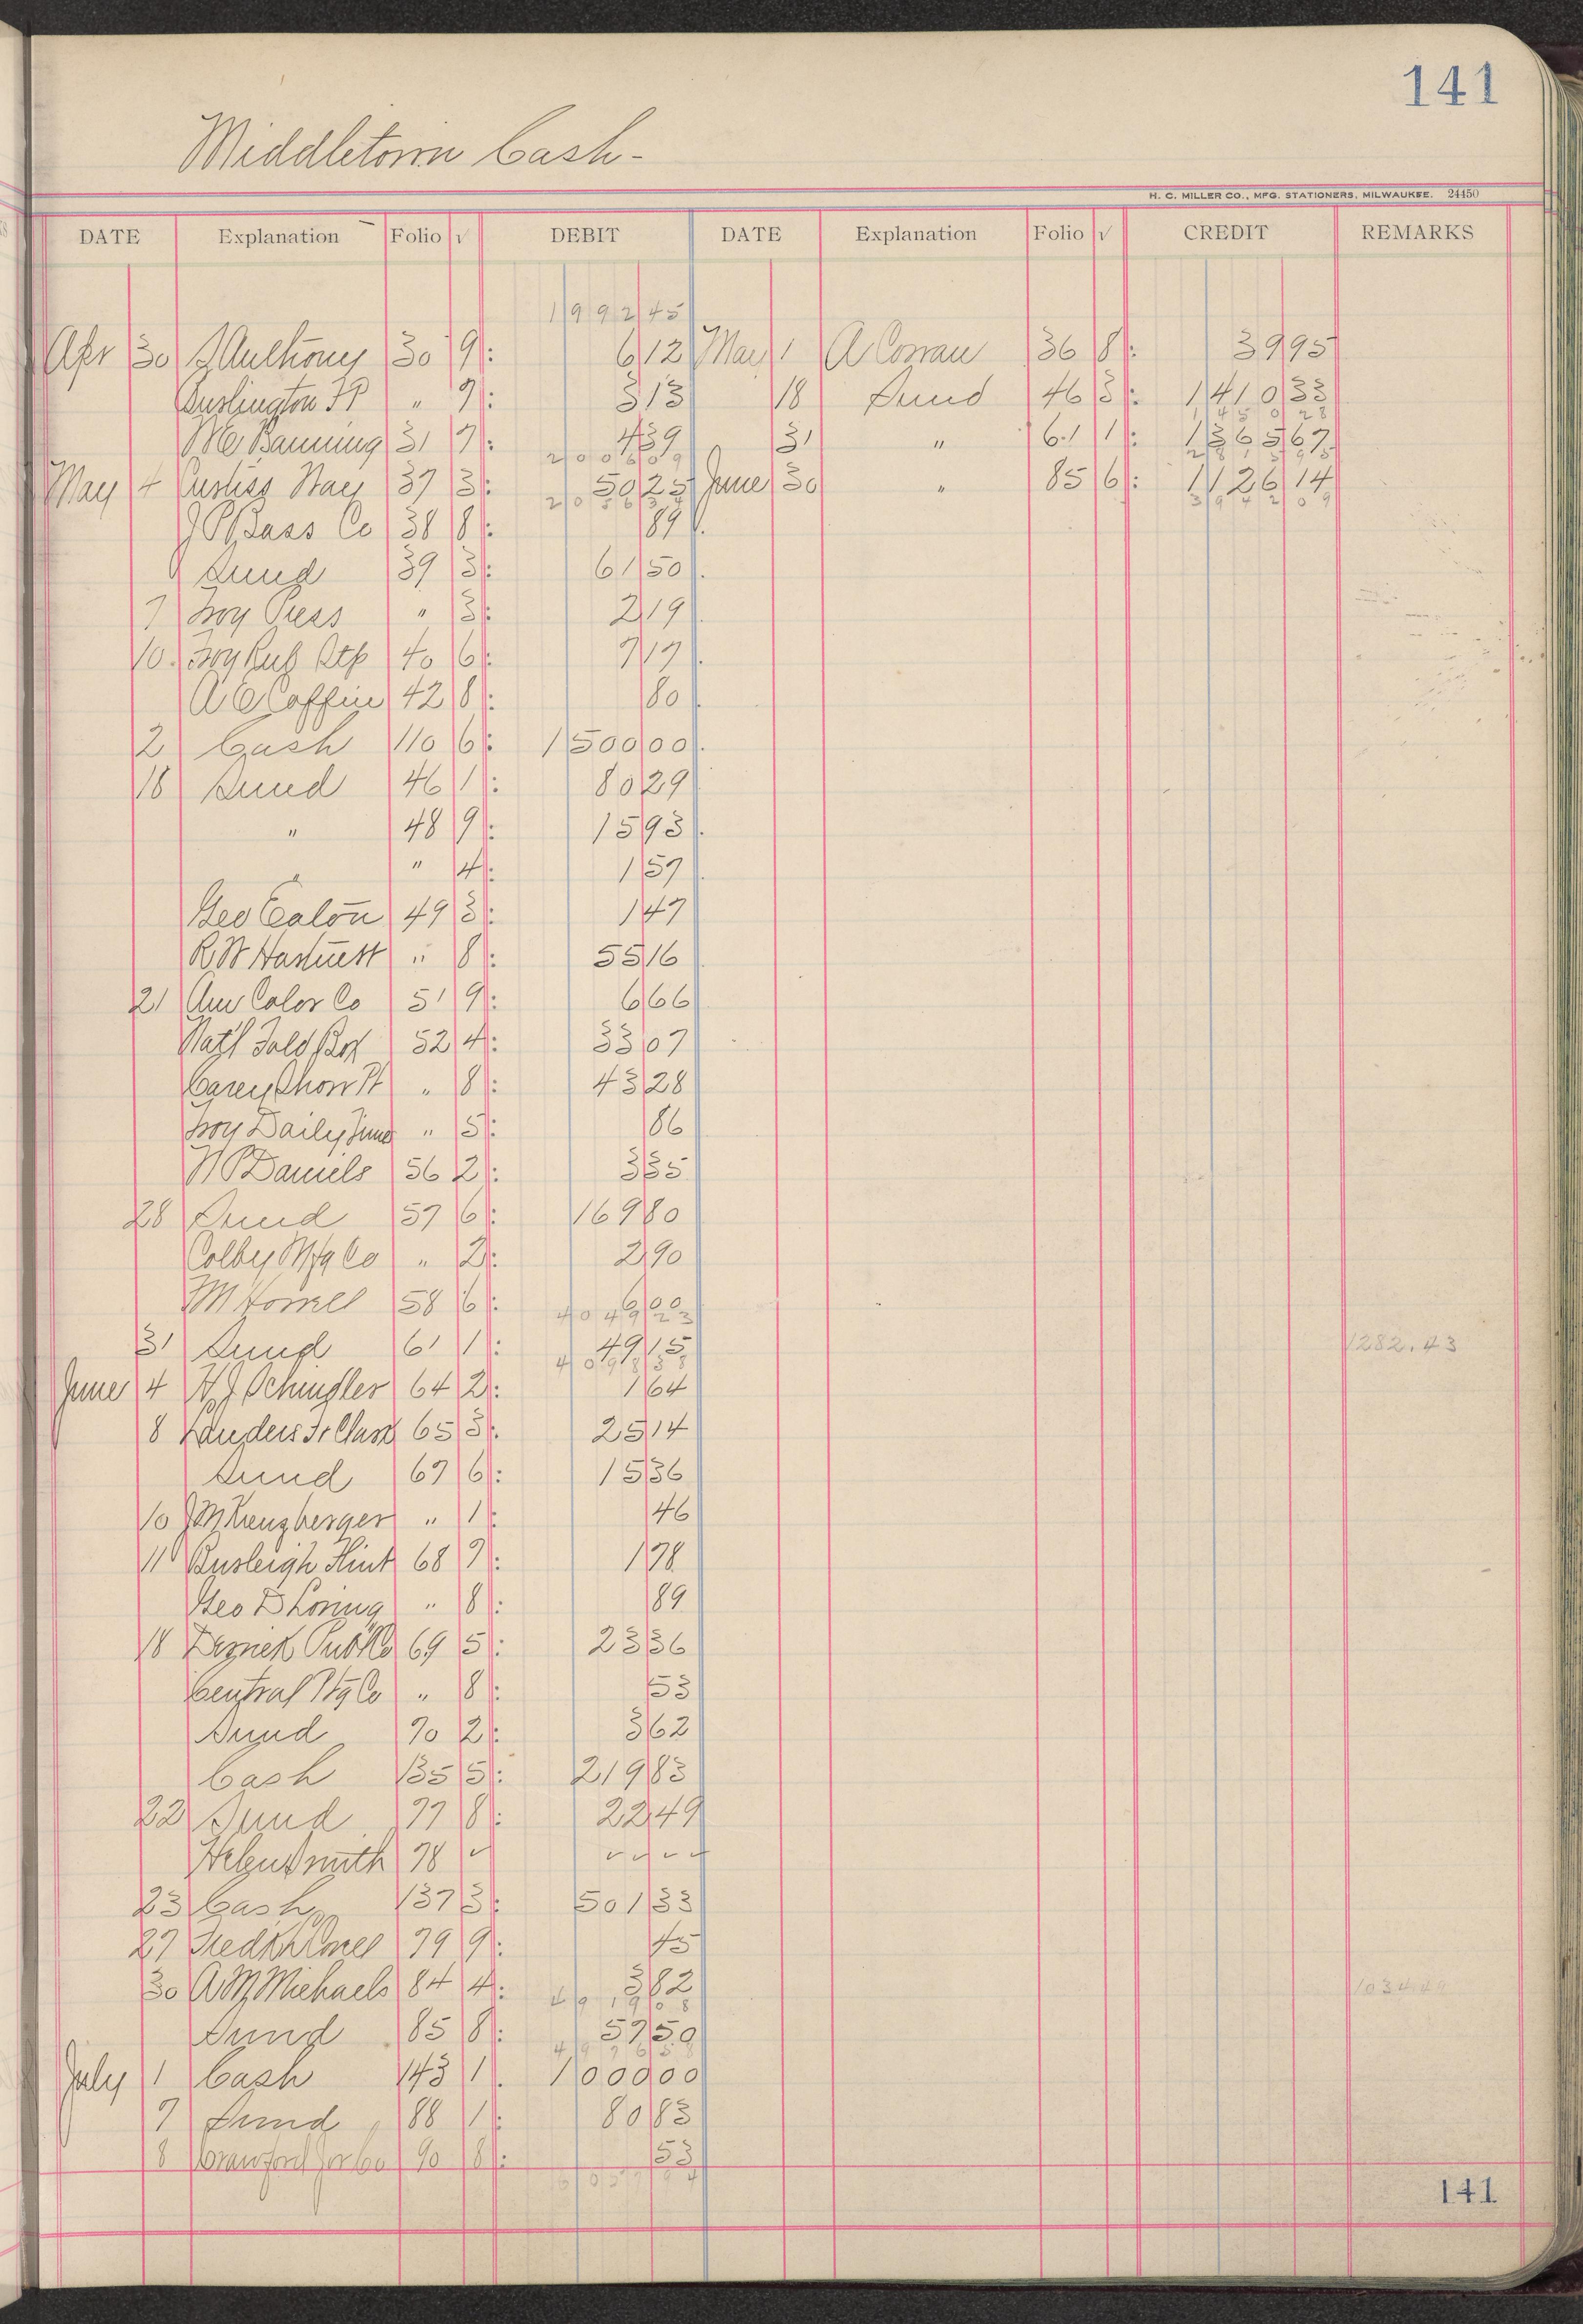 141
Middletown Cash-
H. C. MILLER CO., MFG. STATIONERS, MILWAUKEE. 24450
DATE Explanation Folio √ DEBIT DATE Explanation Folio √ CREDIT REMARKS
1992 45
Apr 30 Anthony 30 9 6 12 May 1 A 36 8 39 95
Burlington 7 3 13 18 Sund 46 3 1410 33
Banning 31 7 4 39 31 " 61 1 1365 67
May 4 Curtiss Way 37 3 50 25 June 30 " 85 6 1126 14
J P Bass Co 38 8 89
Sund 39 3 61 50
7 Troy Press " 3 2 19
10 Troy 40 6 7 17
A C Coffin 42 8 80
2 Cash 110 6 1500 00
18 Sund 46 1 80 29
" 48 9 15 93
" 4 1 57
Geo Eaton 49 3 1 47
R W Hartnett " 8 55 16
21 Am Color Co 51 9 6 66
Nat'l Fold Box 52 4 33 07
Carey Show Pt " 8 43 28
Troy Daily Times " 5 86
Daniels 56 2 3 35
28 Sund 57 6 169 80
Colby Mfg Co " 2 2 90
58 6 6 00
4049 23
31 Sund 61 1 49 15 1282.43
4098 38
June 4 64 2 1 64
8 Landers Fr Clark 65 3 25 14
Sund 67 6 15 36
10 " 1 46
11 Burleigh Flint 68 7 1 78
Geo D Loring " 8 89
18 69 5 23 36
Central Co " 8 53
Sund 70 2 3 62
Cash 135 5 219 83
22 Sund 77 8 22 49
Helen Smith 78 ✓ ✓✓✓✓
23 Cash 137 3 501 33
27 79 9 45
30 A M Michaels 84 4 3 82
4919 08
Sund 85 8 57 50
July 1 Cash 143 1 1000 00
7 Sund 88 1 80 83
8 Crawford 90 8 53
141